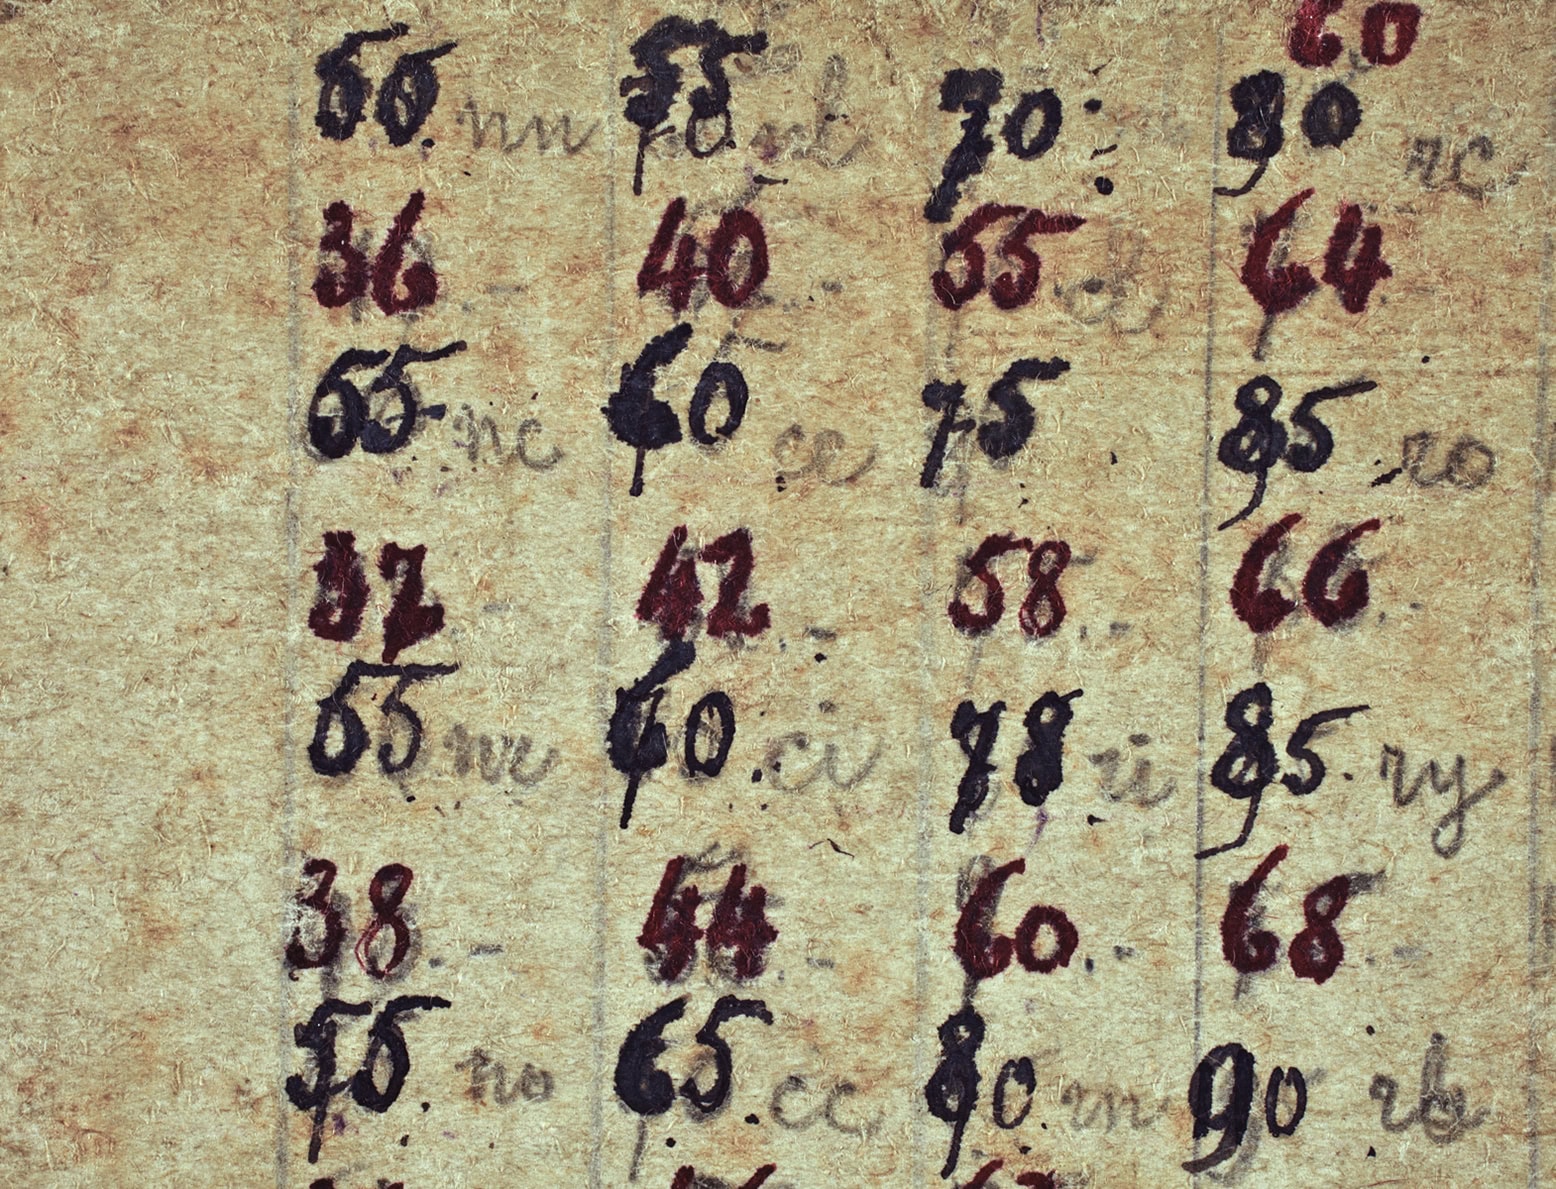 60
55. nn 55 nl 70 80 rc
36 40 55 64
55 nc 60 se 75 85 ro
37 42 58 66
55 60 ci 78 ri 85. ry
38 44 60 68
55. no 65. cc 80. rn 90